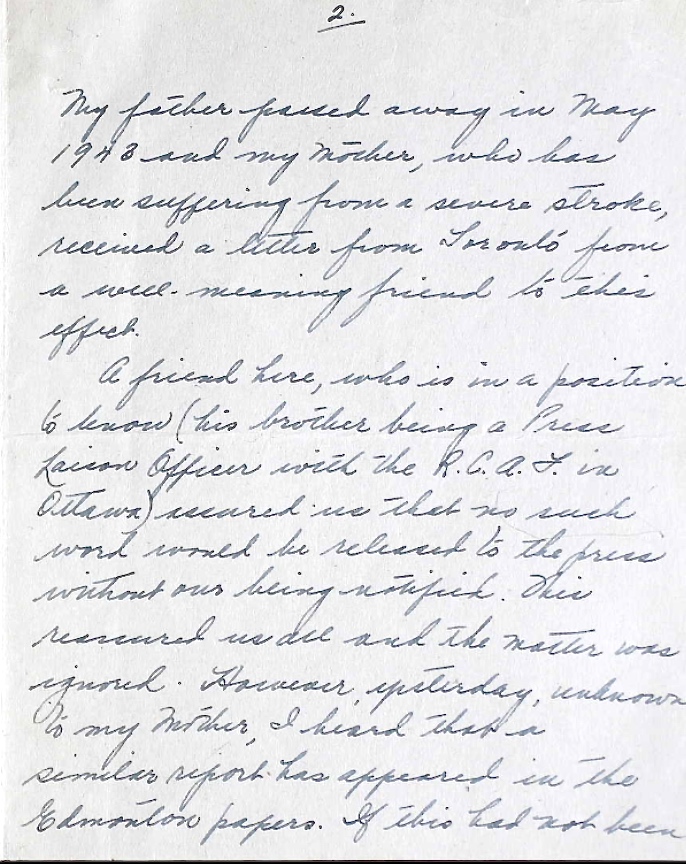 2.
My father passed away in May
1943 and my Mother, who has
been suffering from a severe stroke,
received a letter from Toronto from
a well-meaning friend to this
effect.
A friend here, who is in a position
to know (his brother being a Press
Laison Officer with the R.C.A.F. in
Ottawa) assured us that no such
word would be released to the press
without our being notified. This
reassured us all and the matter was
ignored. However, yesterday, unknown
to my Mother, I heard that a
similar report has appeared in the
Edmonton papers. If this had not been